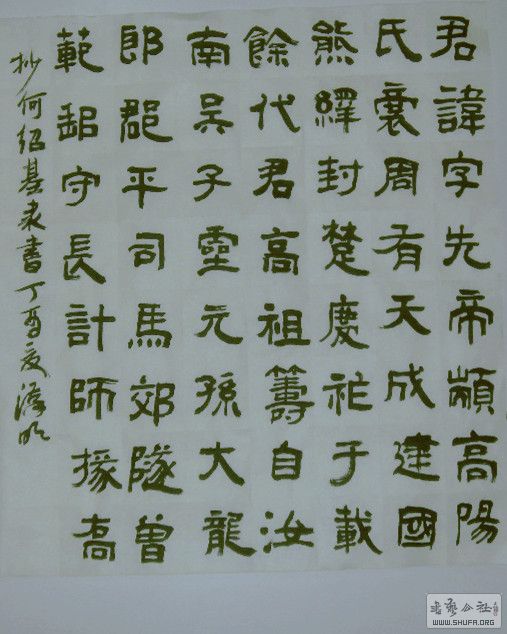 君諱字先帝顓高陽
氏周有天成建國
熊繹封楚慶祉于載
餘代君高祖籌自汝
南吴子靈元孫大龍
郎郡平司馬郊隧曾
範守長計師掾高
抄何绍基隶書丁酉夏
書藝公社
WWW.SHUFA.ORG